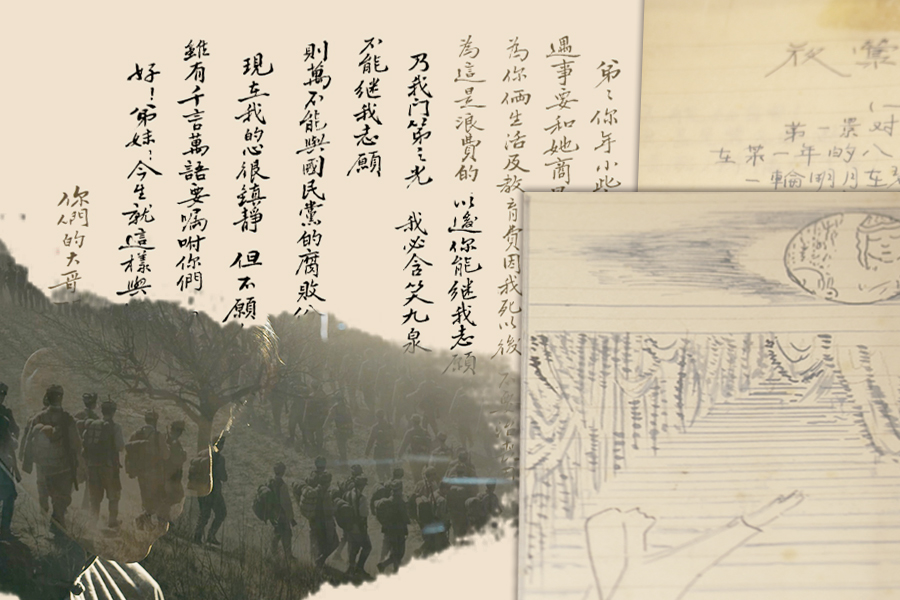 弟々你年小些
遇事要和她商
為你倆生活及教育費因我死以後
為這是浪費的 以後你能继我志願
乃我门第之光 我必含笑九泉
不能继我志願
則萬不能與國民黨的腐敗
現在我的心很鎮静 但不願
雖有千言萬語要嘱咐你們
好！弟妹：今生就這樣與
你們的大哥
第一景 对
在第一年的八
一輪明月在